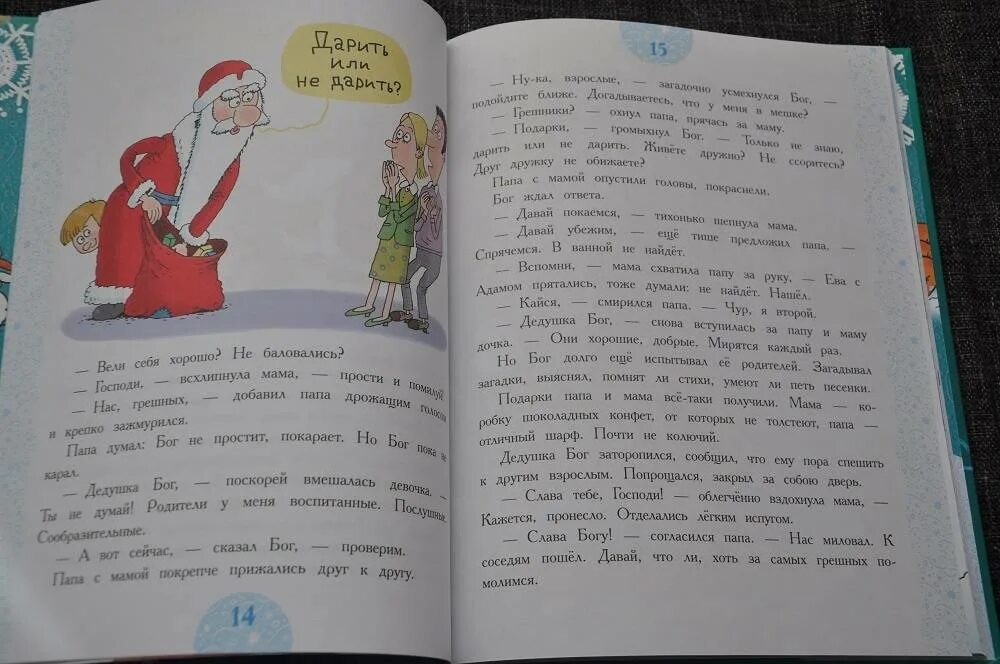 Дарить
или
не дарить?
— Вели себя хорошо? Не баловались?
— Господи, — всхлипнула мама, — прости и помилуй!
— Нас, грешных, — добавил папа дрожащим голосом
и крепко зажмурился.
Папа думал: Бог не простит, покарает. Но Бог пока не
карал.
— Дедушка Бог, — поскорей вмешалась девочка. —
Ты не думай! Родители у меня воспитанные. Послушные.
Сообразительные.
— А вот сейчас, — сказал Бог, — проверим.
Папа с мамой покрепче прижались друг к другу.
14
15
— Ну-ка, взрослые, — загадочно усмехнулся Бог, —
подойдите ближе. Догадываетесь, что у меня в мешке?
— Грешники? — охнул папа, прячась за маму.
— Подарки, — громыхнул Бог. — Только не знаю,
дарить или не дарить. Живёте дружно? Не ссоритесь?
Друг дружку не обижаете?
Папа с мамой опустили головы, покраснели.
Бог ждал ответа.
— Давай покаемся, — тихонько шепнула мама.
— Давай убежим, — ещё тише предложил папа. —
Спрячемся. В ванной не найдёт.
— Вспомни, — мама схватила папу за руку, — Ева с
Адамом прятались, тоже думали: не найдёт. Нашёл.
— Кайся, — смирился папа. — Чур, я второй.
— Дедушка Бог, — снова вступилась за папу и маму
дочка. — Они хорошие, добрые. Мирятся каждый раз.
Но Бог долго ещё испытывал её родителей. Загадывал
загадки, выяснял, помнят ли стихи, умеют ли петь песенки.
Подарки папа и мама всё-таки получили. Мама — ко-
робку шоколадных конфет, от которых не толстеют, папа —
отличный шарф. Почти не колючий.
Дедушка Бог заторопился, сообщил, что ему пора спешить
к другим взрослым. Попрощался, закрыл за собою дверь.
— Слава тебе, Господи! — облегчённо вздохнула мама, —
Кажется, пронесло. Отделались лёгким испугом.
— Слава Богу! — согласился папа. — Нас миловал. К
соседям пошёл. Давай, что ли, хоть за самых грешных по-
молимся.